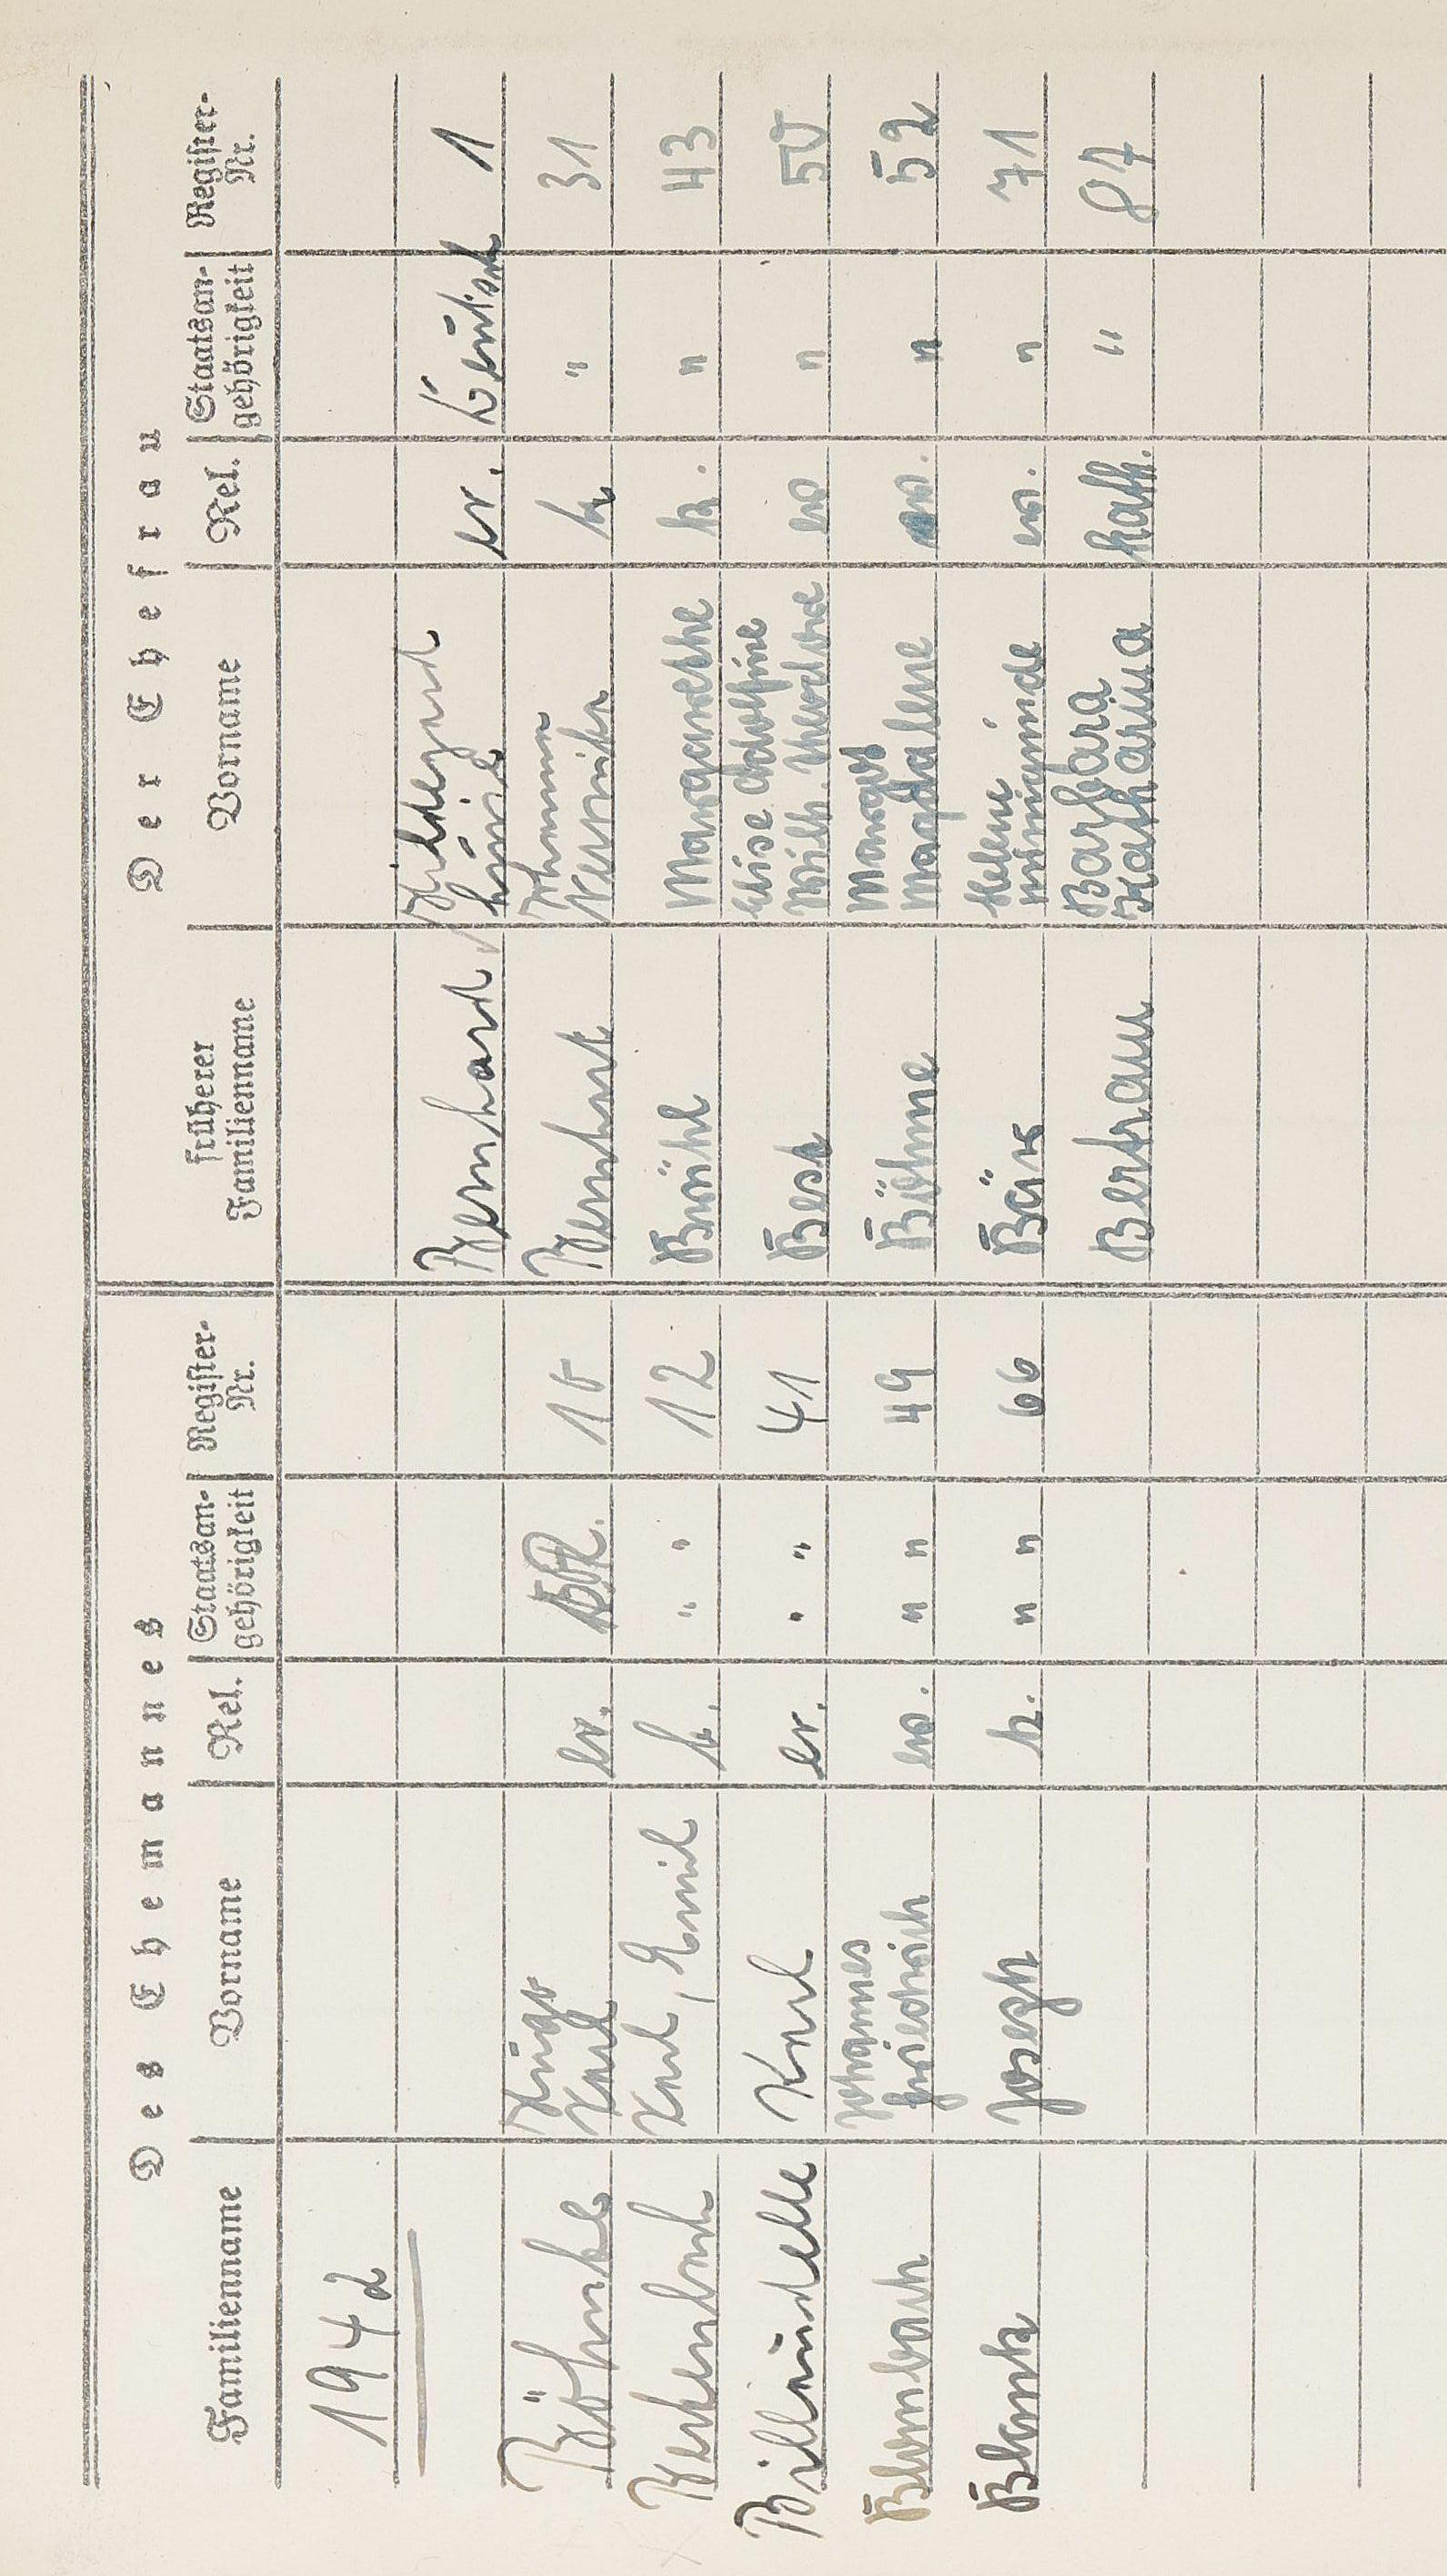 Des Ehemannes Der Ehefrau
Familienname Vorname Rel. Staatsan-gehörigkeit Register-Nr. früherer Familienname Vorname Rel. Staatsan-gehörigkeit Register-Nr.
1942
Bernhard Hildegard Luise ev. Deutsch 1
Böhnke Hugo Karl ev. 10 Bernhart Johanna Veronika k 31
" "
Karl, Emil k. " " 12 Brühl Margarethe k. " 43
Karl ev. " " 41 Best Elise Adolfine Wilh. Theodore ev " 50
Blumbach Johannes Friedrich ev. " " 49 Böhme Margot Magdalene ev. " 52
Blank Joseph k. " " 66 Bär Helene ev. " 71
Bertrau Barbara Katharina kath. " 87